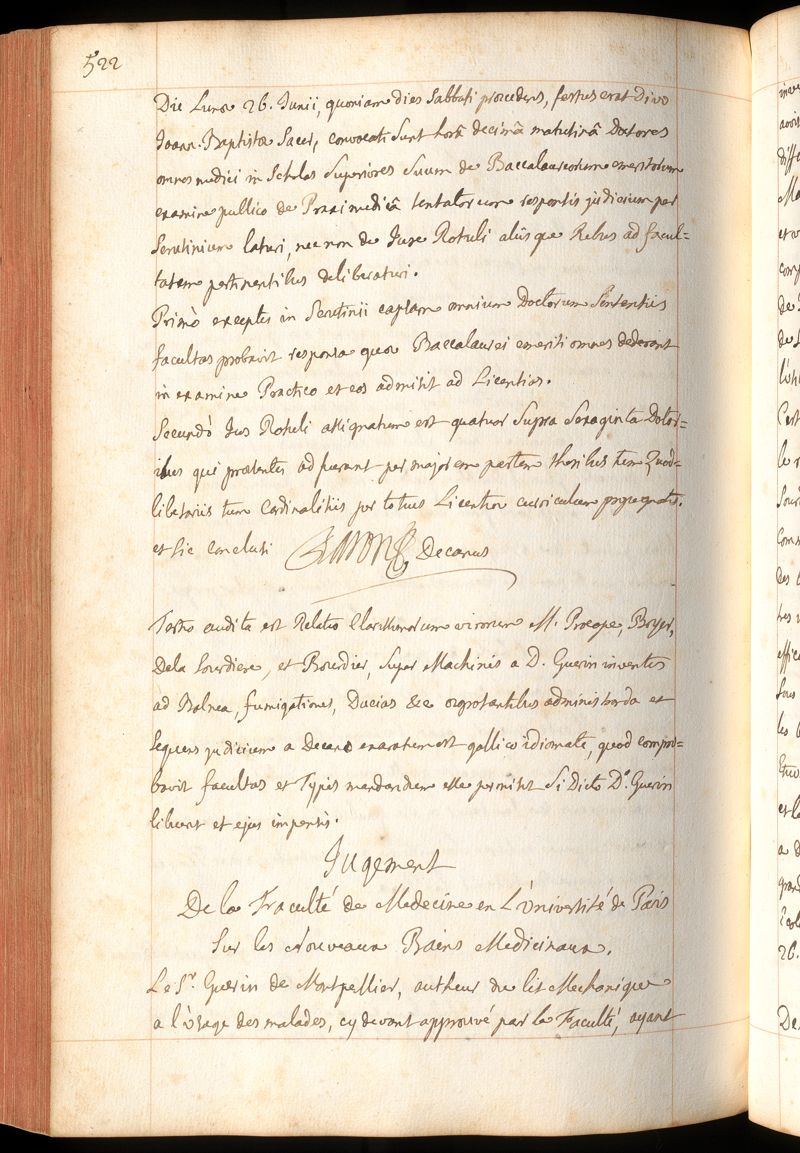 522
Die Lunæ 26. Junii, quoniam dies Sabbati præcedens, festus erat Divo
Joann. Baptistæ Sacer, convocati sunt horâ decimâ matutinâ Doctores
omnes medici in Scholas Superiores suum de Baccalaureorum emeritorum
examine publico de Praxi medicâ tentatorum responsis judicium per
Scrutinium laturi, nec non de Jure Rotuli aliisque Rebus ad facul=
tatem pertinentibus deliberaturi.
Primò exceptis in Scrutinii capsam omnium Doctorum Sententiis
facultas probavit responsa quæ Baccalaurei emeriti omnes dederant
in examine Practico et eos admisit ad Licentias.
Secundò Jus Rotuli assignatum est quatuor supra Sexaginta Doctor=
ibus qui præsentes adfuerant per majorem partem thesibus tum Quod=
libetariis tum Cardinalitiis per totius Licentiæ curriculum propugnatis.
et sic conclusi BARON Decanus
Tertio audita est Relatio Clarissimorum virorum M. Procope, Boyer,
Dela Sourdiere, et Bourdier, super Machinis a D. Guerin inventis
ad Balnea, fumigationes, Ducias &c ægrotantibus administranda et
sequens judicium a Decano exaratum est gallico idiomate, quod compro=
bavit facultas et Typis mandandum esse permisit si Dicto D.° Guerin
liberet et ejus impensis.
Jugement
De la Faculté de Medecine en L'université de Paris
Sur les Nouveaux Bains Medicinaux.
Le Sr. Guerin de Montpellier, autheur du lit Mechanique
a l'usage des malades, cy devant approuvé par la Faculté, ayant